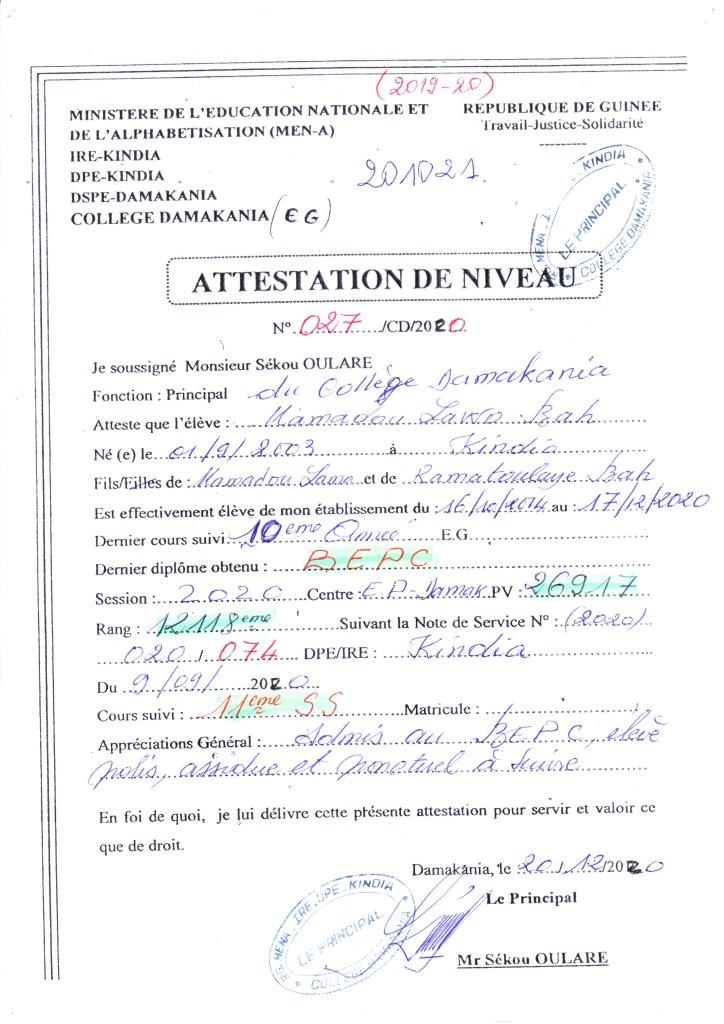 (2019-20)
MINISTERE DE L'EDUCATION NATIONALE ET
DE L'ALPHABETISATION (MEN-A)
IRE-KINDIA
DPE-KINDIA
DSPE-DAMAKANIA
COLLEGE DAMAKANIA (EG)
REPUBLIQUE DE GUINEE
Travail-Justice-Solidarité
201021.
KINDIA
LE PRINCIPAL
COLLEGE DAMAKANIA
ATTESTATION DE NIVEAU
N° 027 /CD/2020
Je soussigné Monsieur Sékou OULARE
Fonction : Principal du Collège Damakania
Atteste que l'élève : Mamadou Lawo Bah
Né (e) le 01/9/2003 à Kindia
Fils/Filles de : Mamadou Lama et de Ramatoulaye Bah
Est effectivement élève de mon établissement du : 16/10/2014 au : 17/12/2020
Dernier cours suivi : 10ème Année E.G
Dernier diplôme obtenu : BEPC
Session : 2020 Centre : E P-Damak PV : 26917
Rang : 12118ème Suivant la Note de Service N° : (2020)
020 / 074 DPE/IRE : Kindia
Du 9/09/ 2020
Cours suivi : 11ème SS Matricule :
Appréciations Général : Admis au BEPC, elevè
polis, assidue et ponctuel à suivre
En foi de quoi, je lui délivre cette présente attestation pour servir et valoir ce
que de droit.
Damakania, le 20/12/2020
Le Principal
IRE-DPE-KINDIA
LE PRINCIPAL
Mr Sékou OULARE